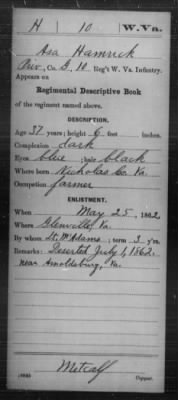 H 10 W.Va.
Asa Hamrick
Priv., Co. G, 10 Reg't W. Va. Infantry.
Appears on
Regimental Descriptive Book
of the regiment named above.
DESCRIPTION.
Age 37 years; height 6 feet inches.
Complexion dark
Eyes blue; hair black
Where born Nicholas Co. Va.
Occupation farmer
ENLISTMENT.
When May 25, 1862
Where Glenville, Va.
By Lt. McAdams; term 3 y'rs.
Remarks: Deserted July 1, 1862
near Arnoldsburg, Va.
Metcalf
Copyist.